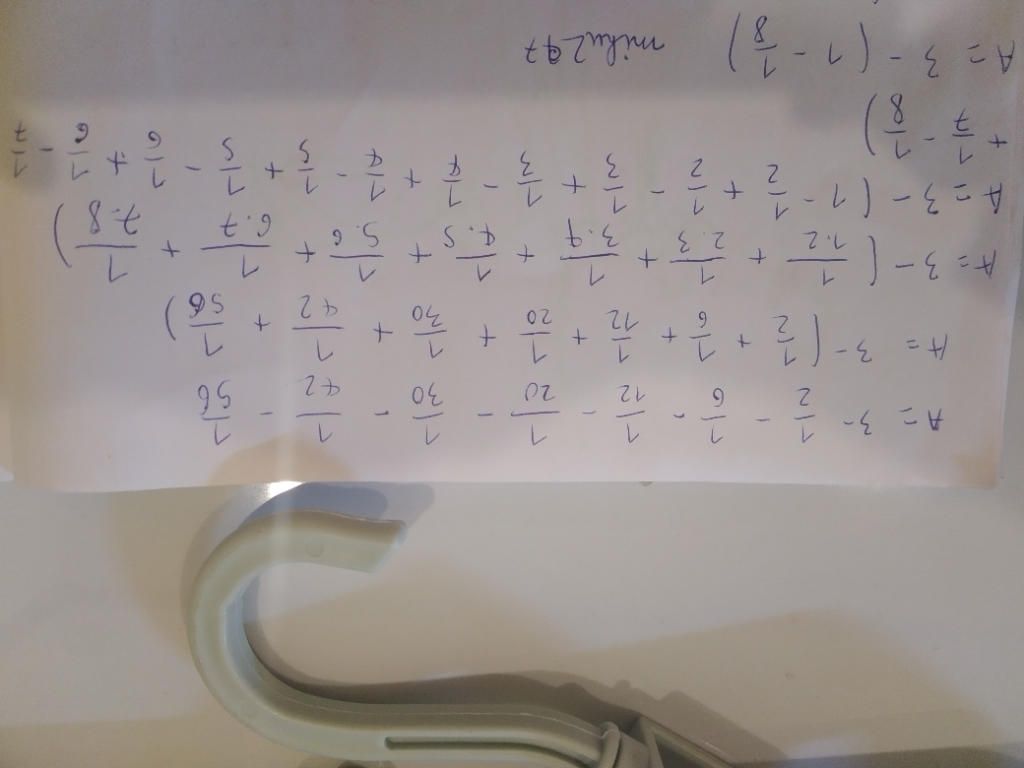 A = 3 - 1/2 - 1/6 - 1/12 - 1/20 - 1/30 - 1/42 - 1/56
A = 3 - (1/2 + 1/6 + 1/12 + 1/20 + 1/30 + 1/42 + 1/56)
A = 3 - (1/1.2 + 1/2.3 + 1/3.4 + 1/4.5 + 1/5.6 + 1/6.7 + 1/7.8)
A = 3 - (1 - 1/2 + 1/2 - 1/3 + 1/3 - 1/4 + 1/4 - 1/5 + 1/5 - 1/6 + 1/6 - 1/7
+ 1/7 - 1/8)
A = 3 - (1 - 1/8) miku247